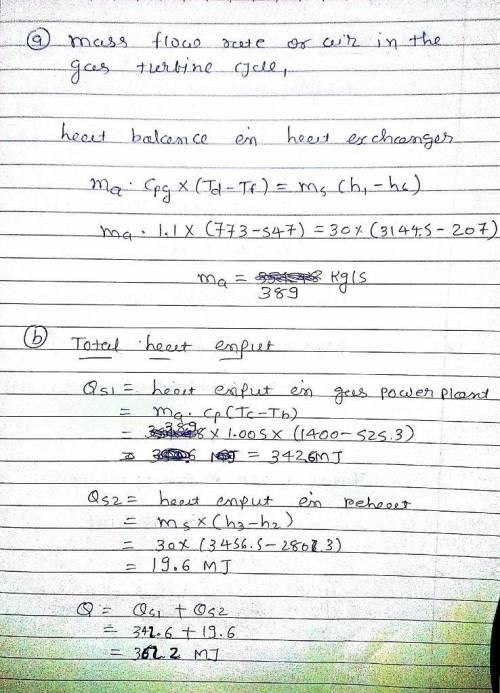 (a) mass flow rate or air in the
gas turbine cycle,
heat balance in heat exchanger
ma · Cpg × (Td - Tf) = ms (h1 - h6)
ma · 1.1 × (773 - 547) = 30 × (3144.5 - 207)
ma = 389 kg/s
(b) Total heat input
Qs1 = heat input in gas power plant
= ma · Cp (Tc - Tb)
= 389 × 1.005 × (1400 - 525.3)
= 342.6 MJ
Qs2 = heat input in reheat
= ms × (h3 - h2)
= 30 × (3456.5 - 2801.3)
= 19.6 MJ
Q = Qs1 + Qs2
= 342.6 + 19.6
= 362.2 MJ